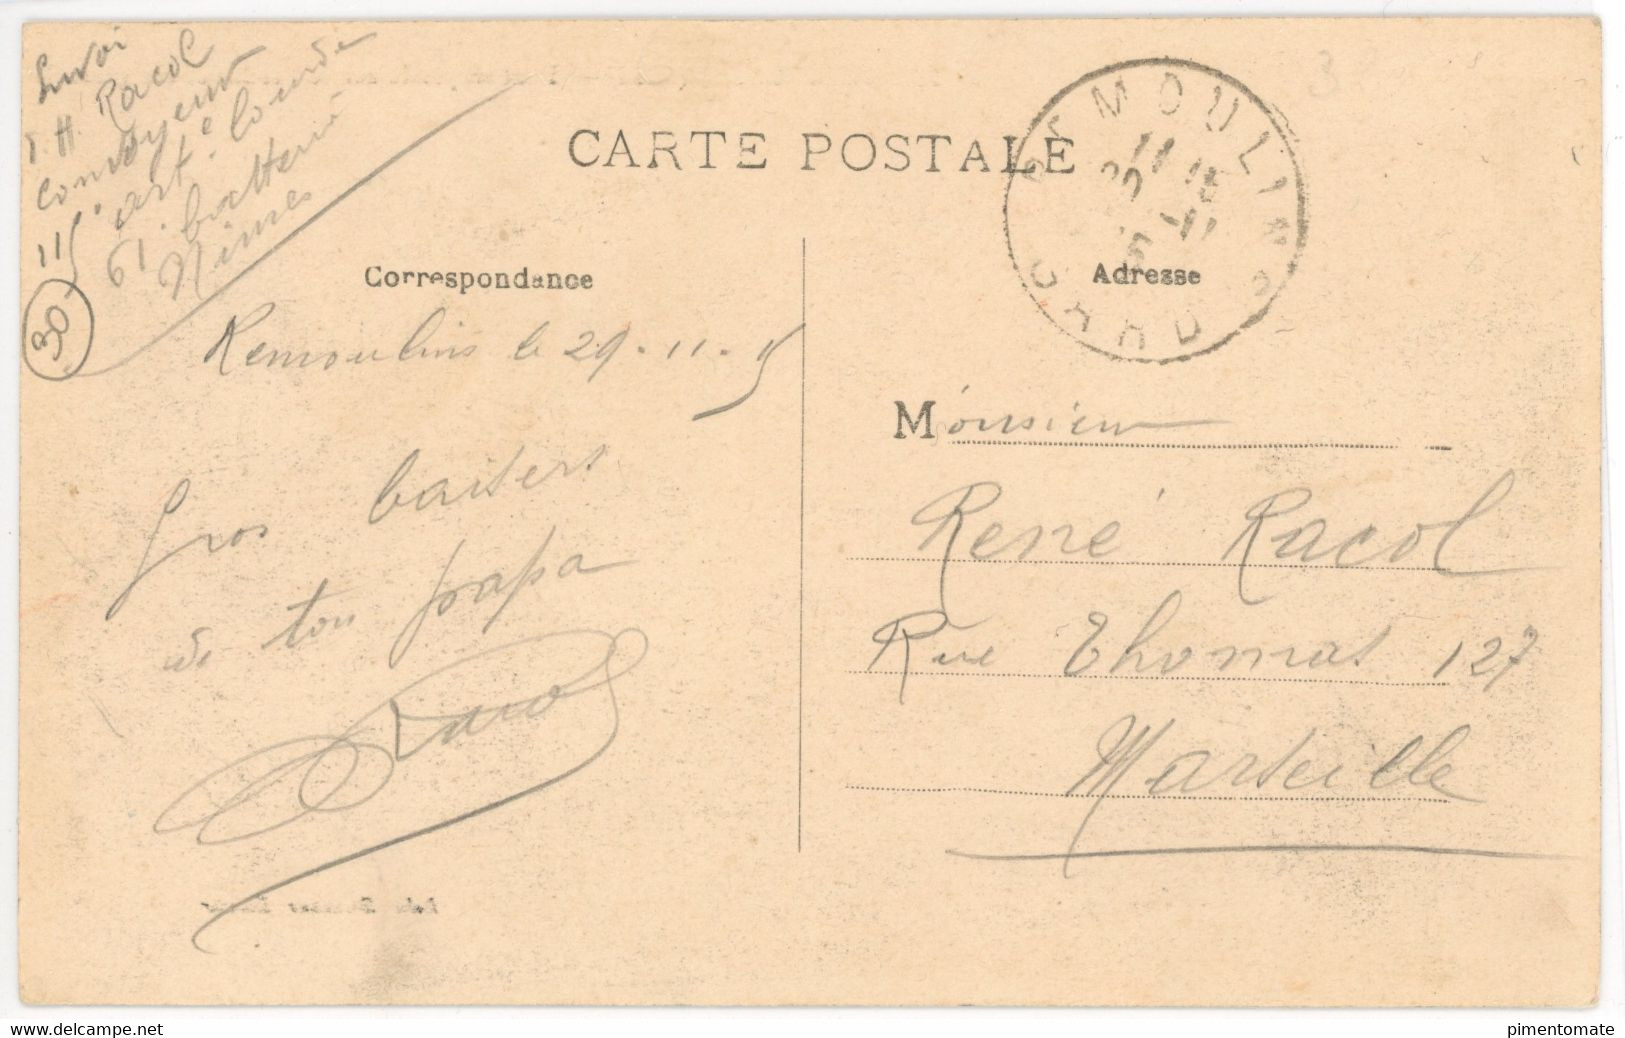 Envoi
Racol
convoyeur
115e art.e lourde
61. batterie
Nimes
30
CARTE POSTALE
REMOULINS
GARD
Correspondance
Adresse
Remoulins le 29-11-15
Gros baisers
de ton papa
Racol
Monsieur
René Racol
Rue Thomas 127
Marseille
www.delcampe.net
pimentomate